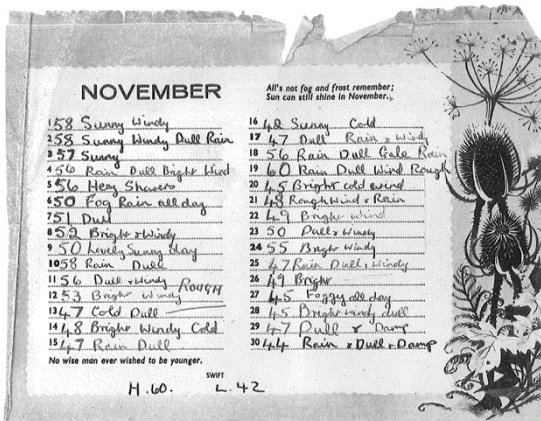 NOVEMBER
All's not fog and frost remember;
Sun can still shine in November.
1 58 Sunny Windy
2 58 Sunny Windy Dull Rain
3 57 Sunny
4 56 Rain Dull Bright Wind
5 56 Hevy Showers
6 50 Fog Rain all day
7 51 Dull
8 52 Bright & Windy
9 50 Lovely Sunny day
10 58 Rain Dull
11 56 Dull & Windy
12 53 Bright Windy ROUGH
13 47 Cold Dull
14 48 Bright Windy Cold
15 47 Rain Dull
No wise man ever wished to be younger.
SWIFT
16 42 Sunny Cold
17 47 Dull Rain & Windy
18 56 Rain Dull Gale Rain
19 60 Rain Dull Wind Rough
20 45 Bright cold wind
21 48 Rough Wind & Rain
22 49 Bright wind
23 50 Dull & Windy
24 55 Bright Windy
25 47 Rain Dull, Windy
26 49 Bright
27 45 Foggy all day
28 45 Bright windy dull
29 47 Dull & Damp
30 44 Rain & Dull & Damp
H. 60. L. 42